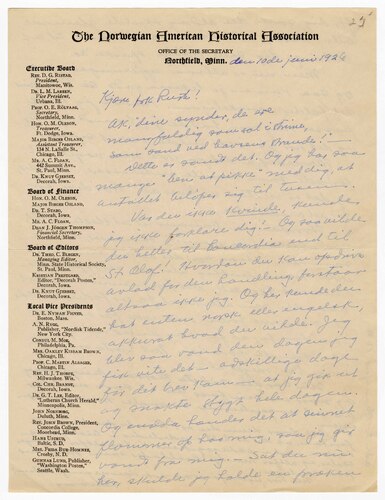 25
The Norwegian American Historical Association
OFFICE OF THE SECRETARY
Northfield, Minn. den 10de juni 1926
Executive Board
REV. D. G. RISTAD,
President,
Manitowoc, Wis.
DR. L. M. LARSEN,
Vice President,
Urbana, Ill.
PROF. O. E. RÖLVAAG,
Secretary,
Northfield, Minn.
HON. O. M. OLESON,
Treasurer,
Ft. Dodge, Iowa.
MAJOR BIRGER OSLAND,
Assistant Treasurer,
134 N. LaSalle St.,
Chicago, Ill.
MR. A. C. FLOAN,
St. Paul, Minn.
DR. KNUT GJERSET,
Decorah, Iowa.
Board of Finance
HON. O. M. OLESON,
MAJOR BIRGER OSLAND,
DR. T. STABO,
Decorah, Iowa.
MR. A. C. FLOAN,
DEAN J. JÖRGEN THOMPSON,
Financial Secretary,
Northfield, Minn.
Board of Editors
DR. THEO. C. BLEGEN,
Managing Editor,
Minn. State Historical Society,
St. Paul, Minn.
KRISTIAN PRESTGARD,
Editor, "Decorah Posten,"
Decorah, Iowa.
DR. KNUT GJERSET,
Decorah, Iowa.
Local Vice Presidents
Boston, Mass.
A. N. RYGG,
Publisher, "Nordisk Tidende,"
New York City.
CONSUL M. MOE,
Philadelphia, Pa.
MRS. OAKLEY KISSAM BROWN,
Chicago, Ill.
PROF. C. MARTIN ALSAGER,
Chicago, Ill.
REV. H. J. THORPE,
Milwaukee, Wis.
COL. CHR. BRANDT,
Decorah, Iowa.
DR. G. T. LEE, Editor
"Lutheran Church Herald,"
Minneapolis, Minn.
JOHN NORDBERG,
Duluth, Minn.
REV. JOHN BROWN, President,
Concordia College,
Moorhead, Minn.
HANS USTRUD,
Baltic, S. D.
MRS. FRIDA BUE HOMNES,
Crosby, N. D.
GUNNAR LUND, Publisher,
"Washington Posten,"
Seattle, Wash.
Kjære frk Rush!
Ak, dine synder, de ere
mangfoldig som sol i
som sand ved havsens brande!
Dette er sandt det. Og jeg har saa
mange "ben at pikke" med dig, at
antallet utløper sig til
Var du ikke kvinde, kunde
jeg ikke forklare dig:- Og saa vilde
du heller til Canderdia end til
St. Olaf! Hvordan du kan opdrive
avlad for den handling, forstaar
altsaa ikke jeg. Og her kunde du
hat enten norsk eller engelsk,
akkurat hvad du vilde. Jeg
blev saa vond den dagen jeg
fik vite det - adskillige dage
før det brev kom - at jeg gik ut
og snakte stygt hele dagen.
Og endda hænder det at sinnet
flammer op hos mig, saa jeg gir
vond fra mig. - Sat du nu
her, skulde jeg holde en præken